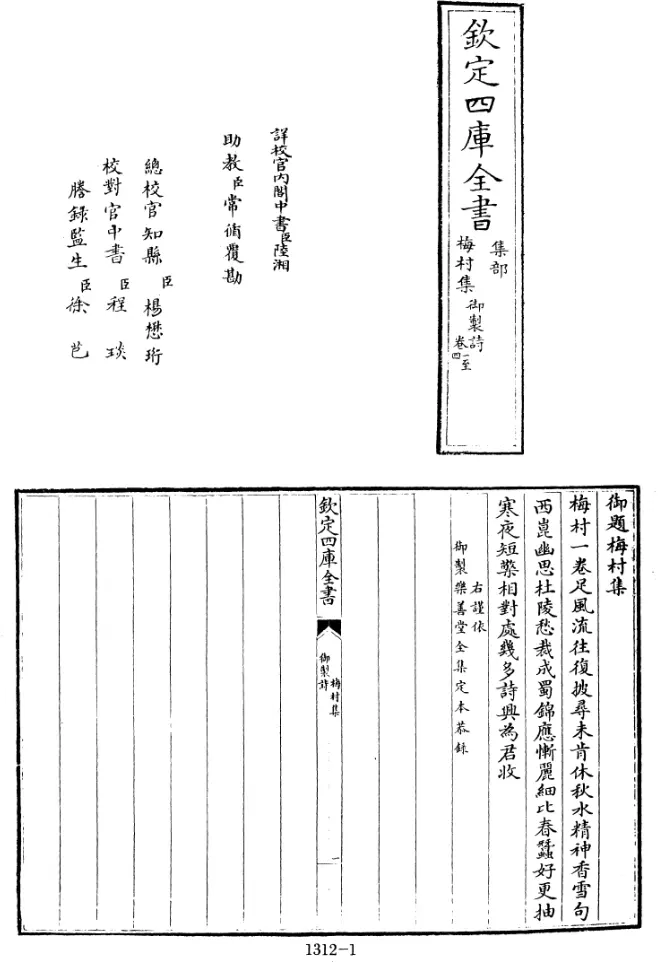 欽定四庫全書
集部
梅村集御製詩
卷一至
四
詳校官內閣中書臣陸湘
助教臣常循覆勘
總校官知縣臣楊懋珩
校對官中書臣程琰
謄錄監生臣徐芑
御題梅村集
梅村一卷足風流往復披尋未肯休秋水精神香雪句
西崑幽思杜陵愁裁成蜀錦應慚麗細比春蠶好更抽
寒夜短檠相對處幾多詩興為君收
右謹依
御製樂善堂全集定本恭錄
欽定四庫全書
梅村集
御製詩
一
1312-1